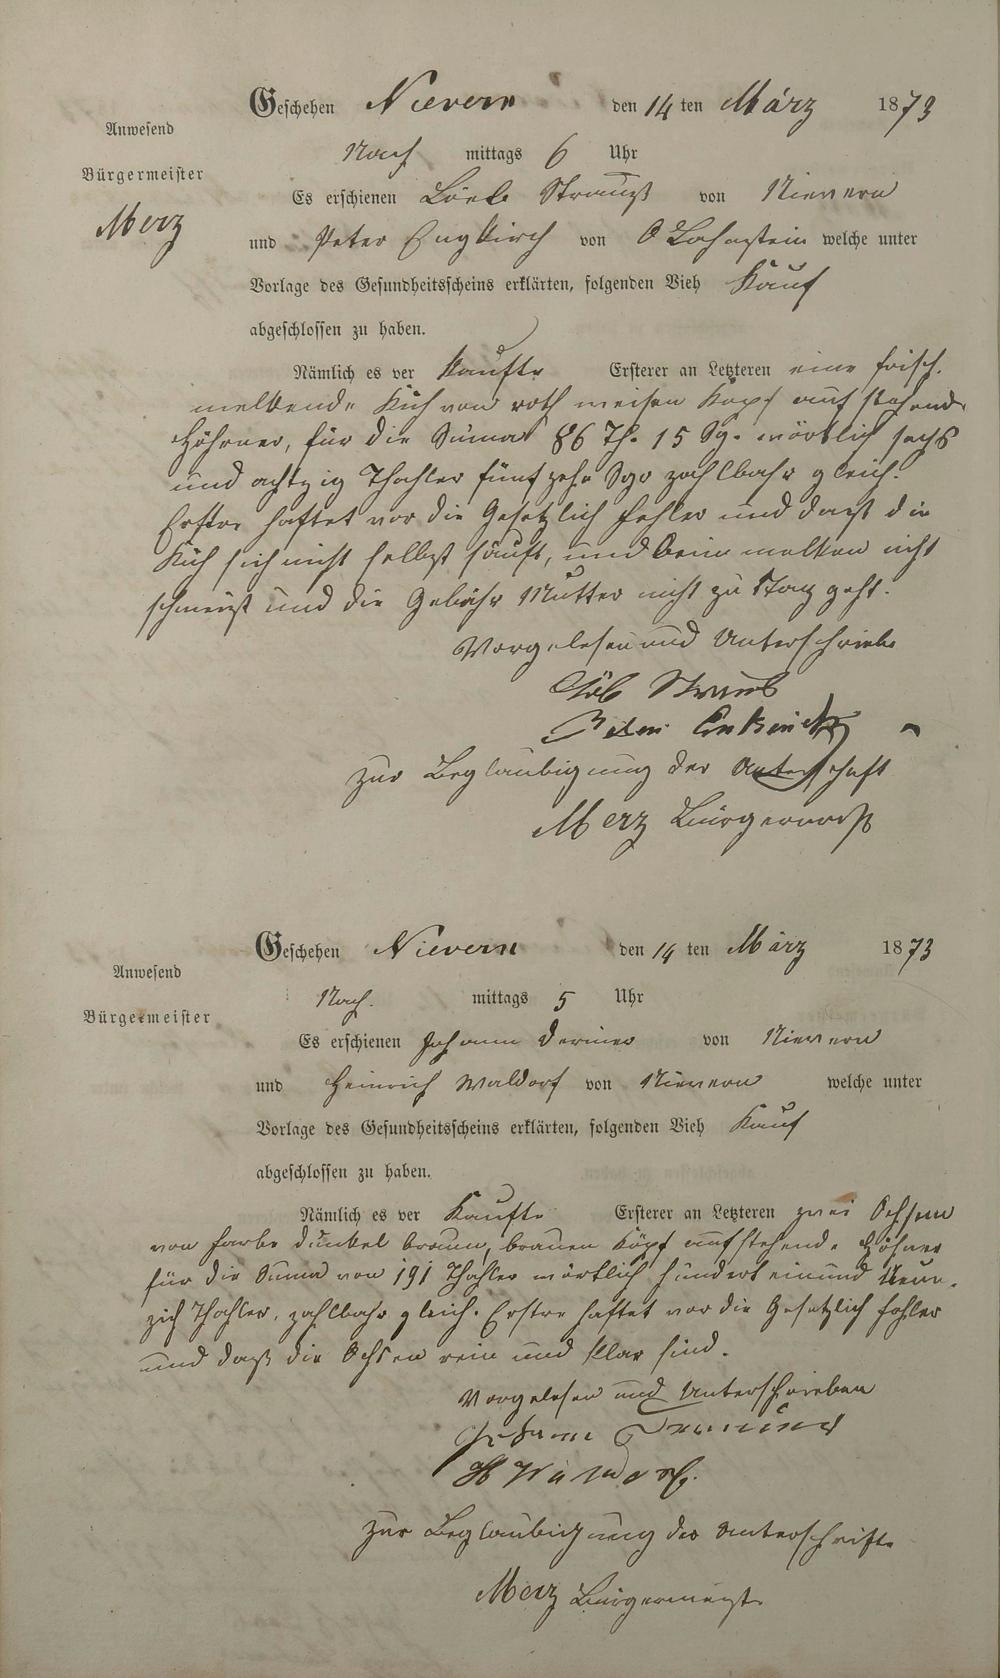 Geschehen Nievern den 14 ten März 1873
Anwesend
Nach mittags 6 Uhr
Bürgermeister
Es erschienen Löeb Strauß von Nievern
Merz
und Peter Engkirch von O Lahnstein welche unter
Vorlage des Gesundheitsscheins erklärten, folgenden Vieh Kauf
abgeschlossen zu haben.
Nämlich es ver kaufte Ersterer an Letzteren eine frisch
melkende Kuh von roth weisen Kopf auf stehende
Höhrner, für die Suma 86 Th. 15 Sg. wörtlich sechs
und achtzig Thahler fünf zehn Sgr zahlbahr gleich.
Erster haftet vor die Gesetzlich fehler und daß die
Kuh sich nicht selbst säuft, und beim melken nicht
schmeist und die Gebähr Mutter nicht zu Tag geht.
Vorgelesen und Unterschrieben
Löb Straus
zur Beglaubigung der Unterschaft
Merz Bürgermeist
Geschehen Nievern den 14 ten März 1873
Anwesend
Nach. mittags 5 Uhr
Bürgermeister
Es erschienen Johann von Nievern
und Heinrich Waldorf von Nievern welche unter
Vorlage des Gesundheitsscheins erklärten, folgenden Vieh Kauf
abgeschlossen zu haben.
Nämlich es ver Kaufte Ersterer an Letzteren zwei Ochsen
von farbe dunkel braun, brauen Köpf aufstehende Höhner
für die Suma von 191 Thahler wörtlich hundert einund Neun-
zich Thahler, zahlbahr gleich. Erstre haftet vor die Gesetzlich fehler
und daß die Ochsen rein und klar sind.
Vorgelesen und Unterschrieben
Johann
H Waldorf.
zur Beglaubichung der unterschrifte
Merz Bürgermeister